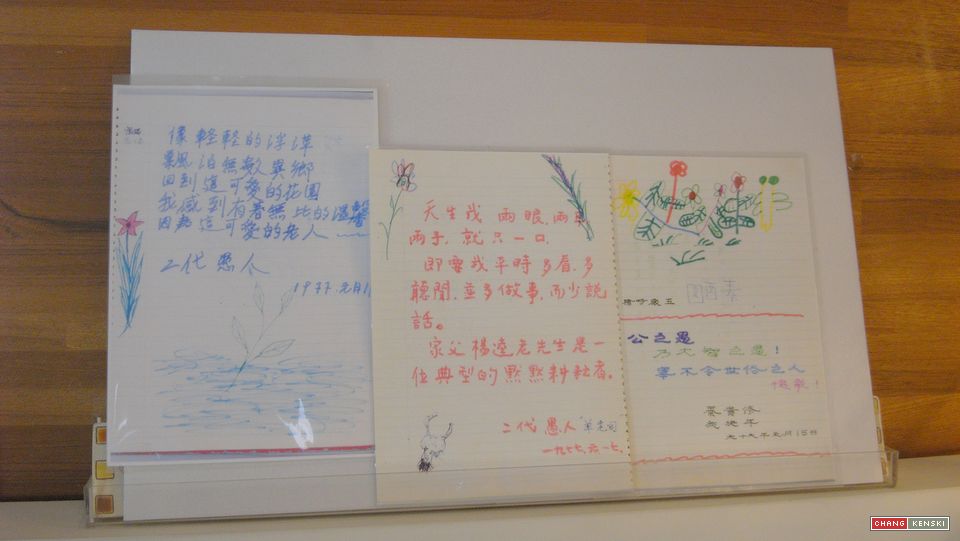 像輕輕的浮萍
飄風泊無數異鄉
回到這可愛的花園
我感到有著無比的溫馨
因為這可愛的老人
二代愚人
1977.元月1
天生我 兩眼,兩耳
兩手,就只一口,
即要我平時多看,多
聽聞,並多做事,而少說
話。
家父楊逵老先生是一
位典型的默默耕耘者。
二代愚人
一九七七.六.一七.
公之愚
乃大智之愚!
寧不令世俗之人
愧歉!